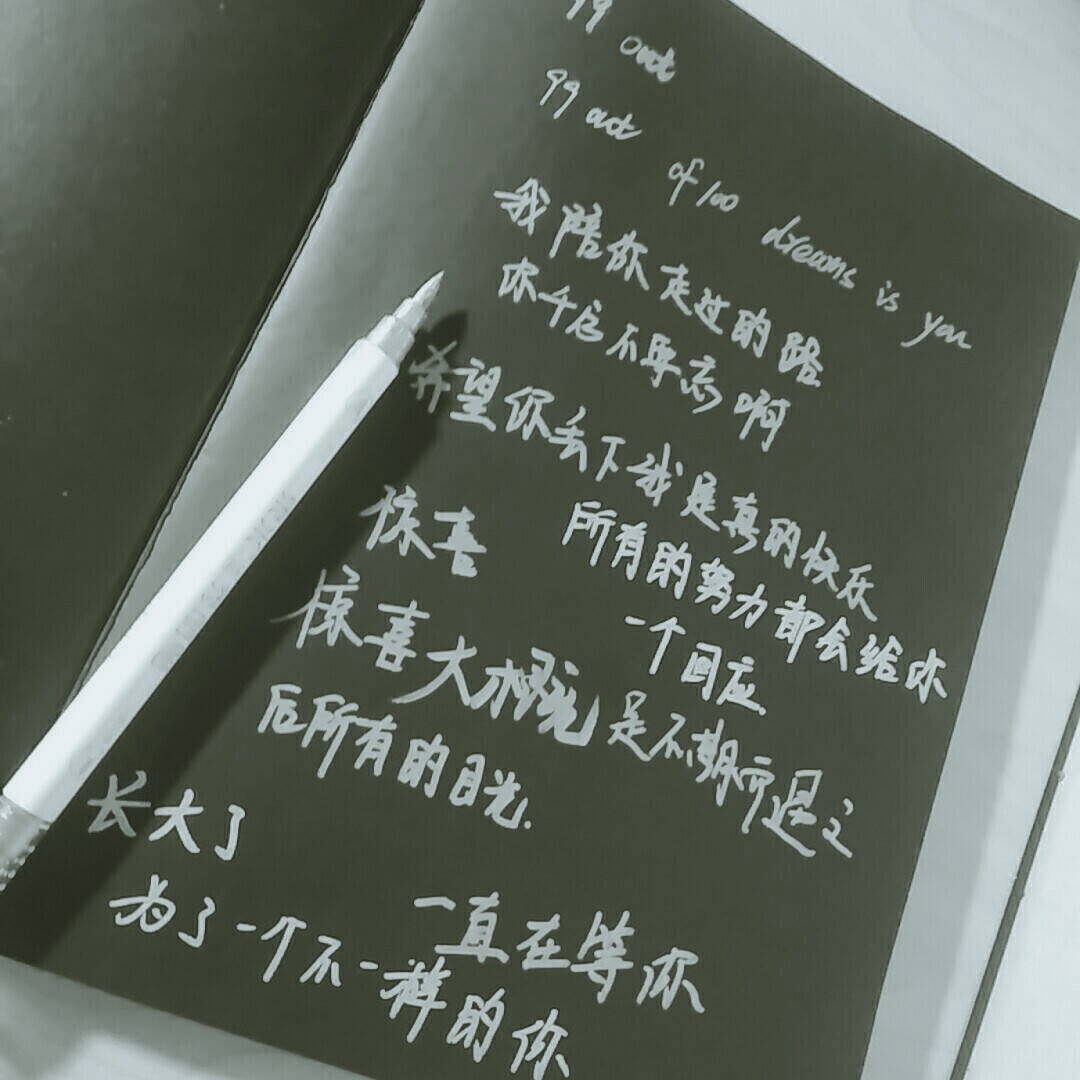 99 out
99 out of 100 dreams is you
我陪你走过的路
你千后不再忘啊
希望你丢下我是真的快乐
惊喜
所有的努力都会给你
一个回应.
惊喜大概是不期而遇之
后所有的目光.
长大了
一直在等你
为了一个不一样的你